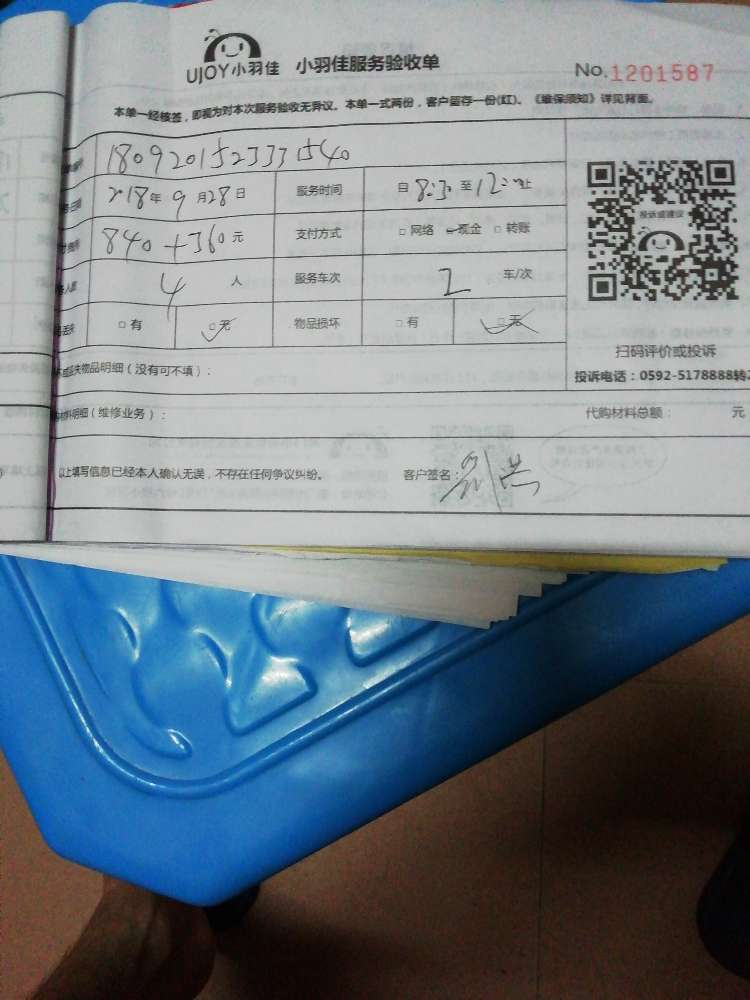 UJOY小羽佳 小羽佳服务验收单 No.1201587
本单一经核签，即视为对本次服务验收无异议。本单一式两份，客户留存一份(红)。《维保须知》详见背面。
1809201523331540
2018年9月28日 服务时间 自8:30至12:00止
840+360元 支付方式 □网络 □现金 □转账
4人 服务车次 2车/次
□有 □无 物品损坏 □有 □无
投诉或建议
丢失物品明细（没有可不填）：
扫码评价或投诉
投诉电话：0592-5178888转2
材料明细（维修业务）： 代购材料总额： 元
以上填写信息已经本人确认无误，不存在任何争议纠纷。 客户签名：